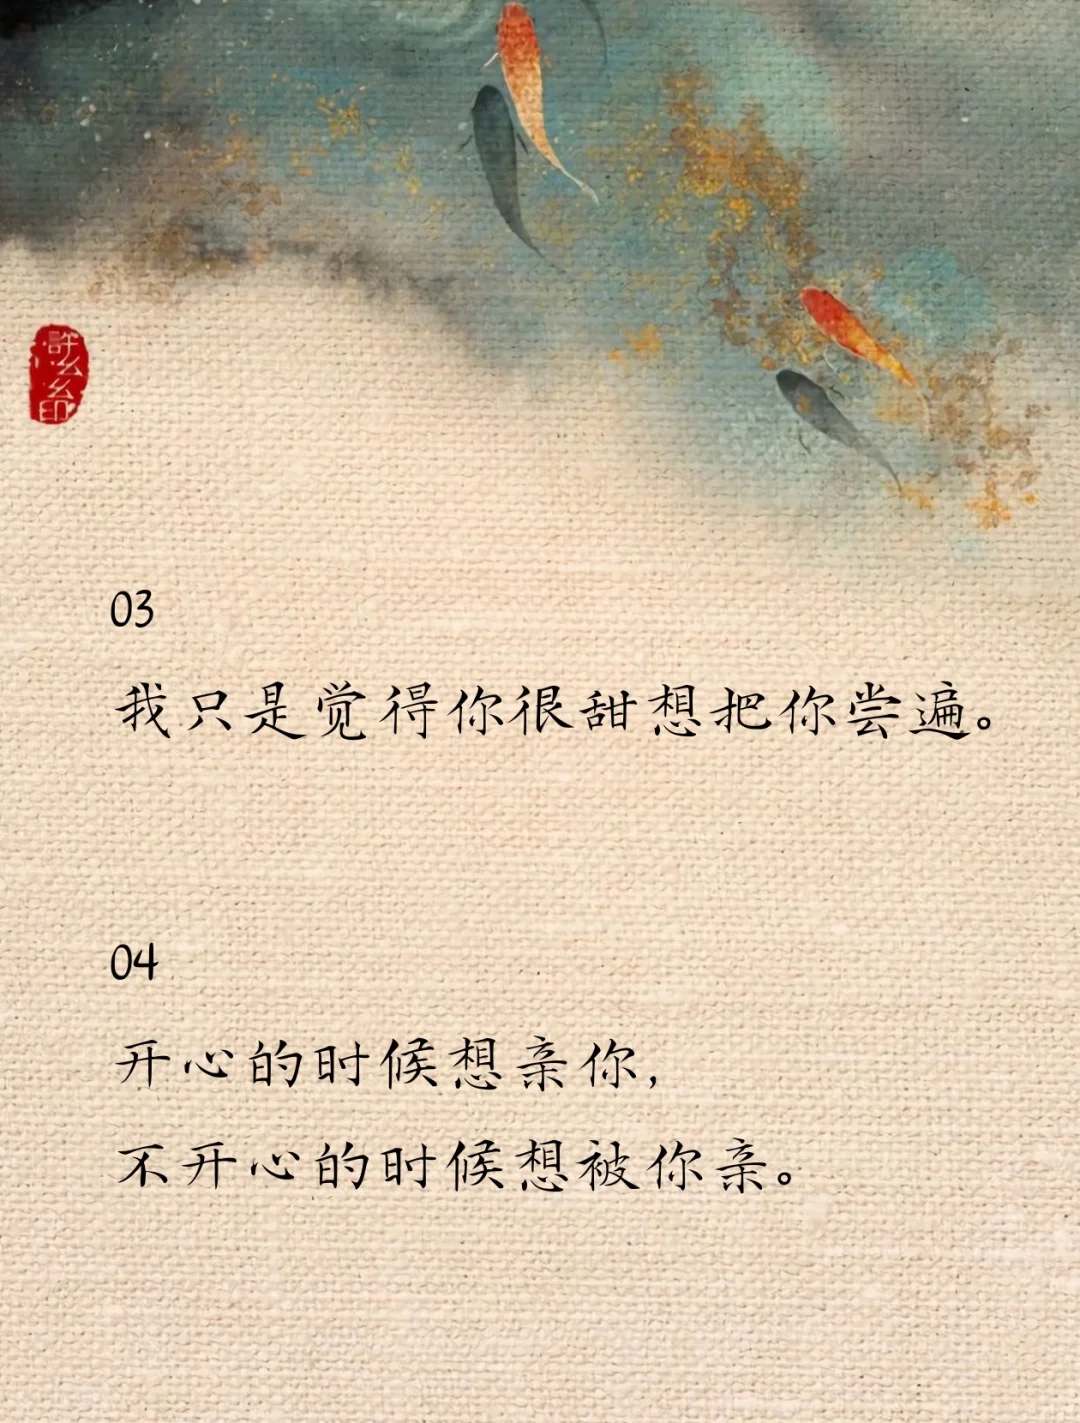 03
我只是觉得你很甜想把你尝遍。
04
开心的时候想亲你,
不开心的时候想被你亲。